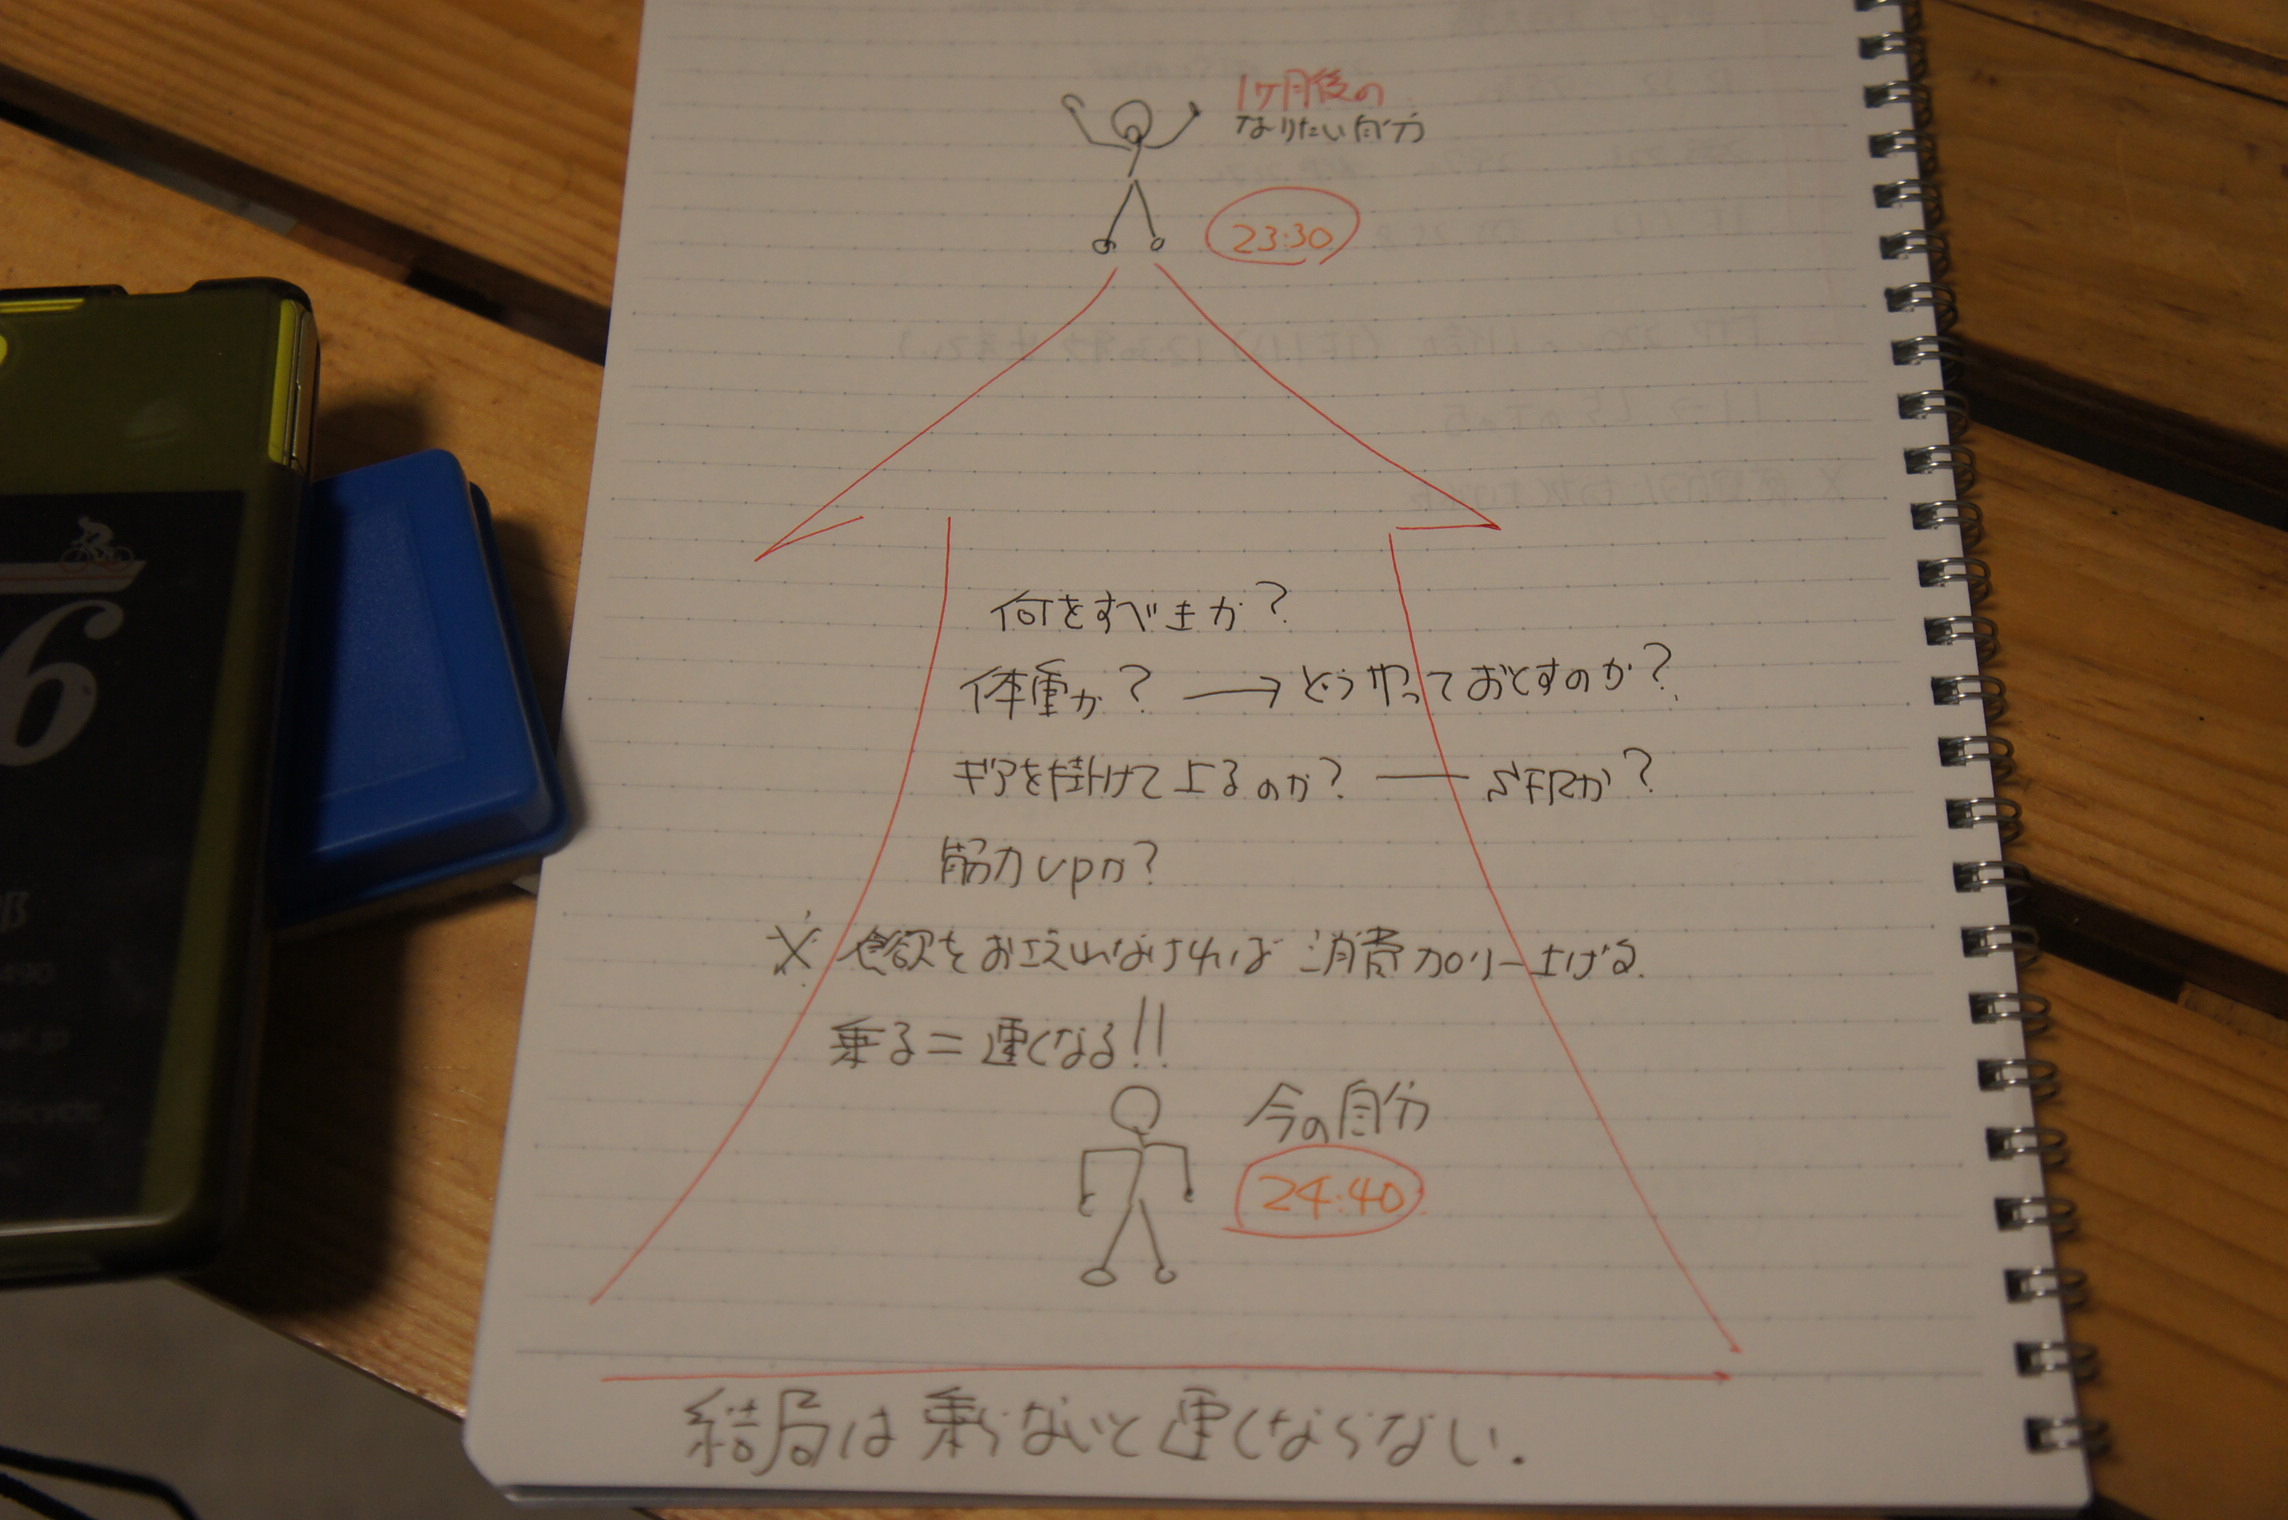 1ヶ月後の
なりたい自分
23:30
何をすべきか?
体重か? → どうやっておとすのか?
ギアを掛けて上るのか? — SFRか?
筋力upか?
※ 食欲をおさえれなければ 消費カロリー上げる
乗る=速くなる!!
今の自分
24:40
結局は乗らないと速くならない.
6
490